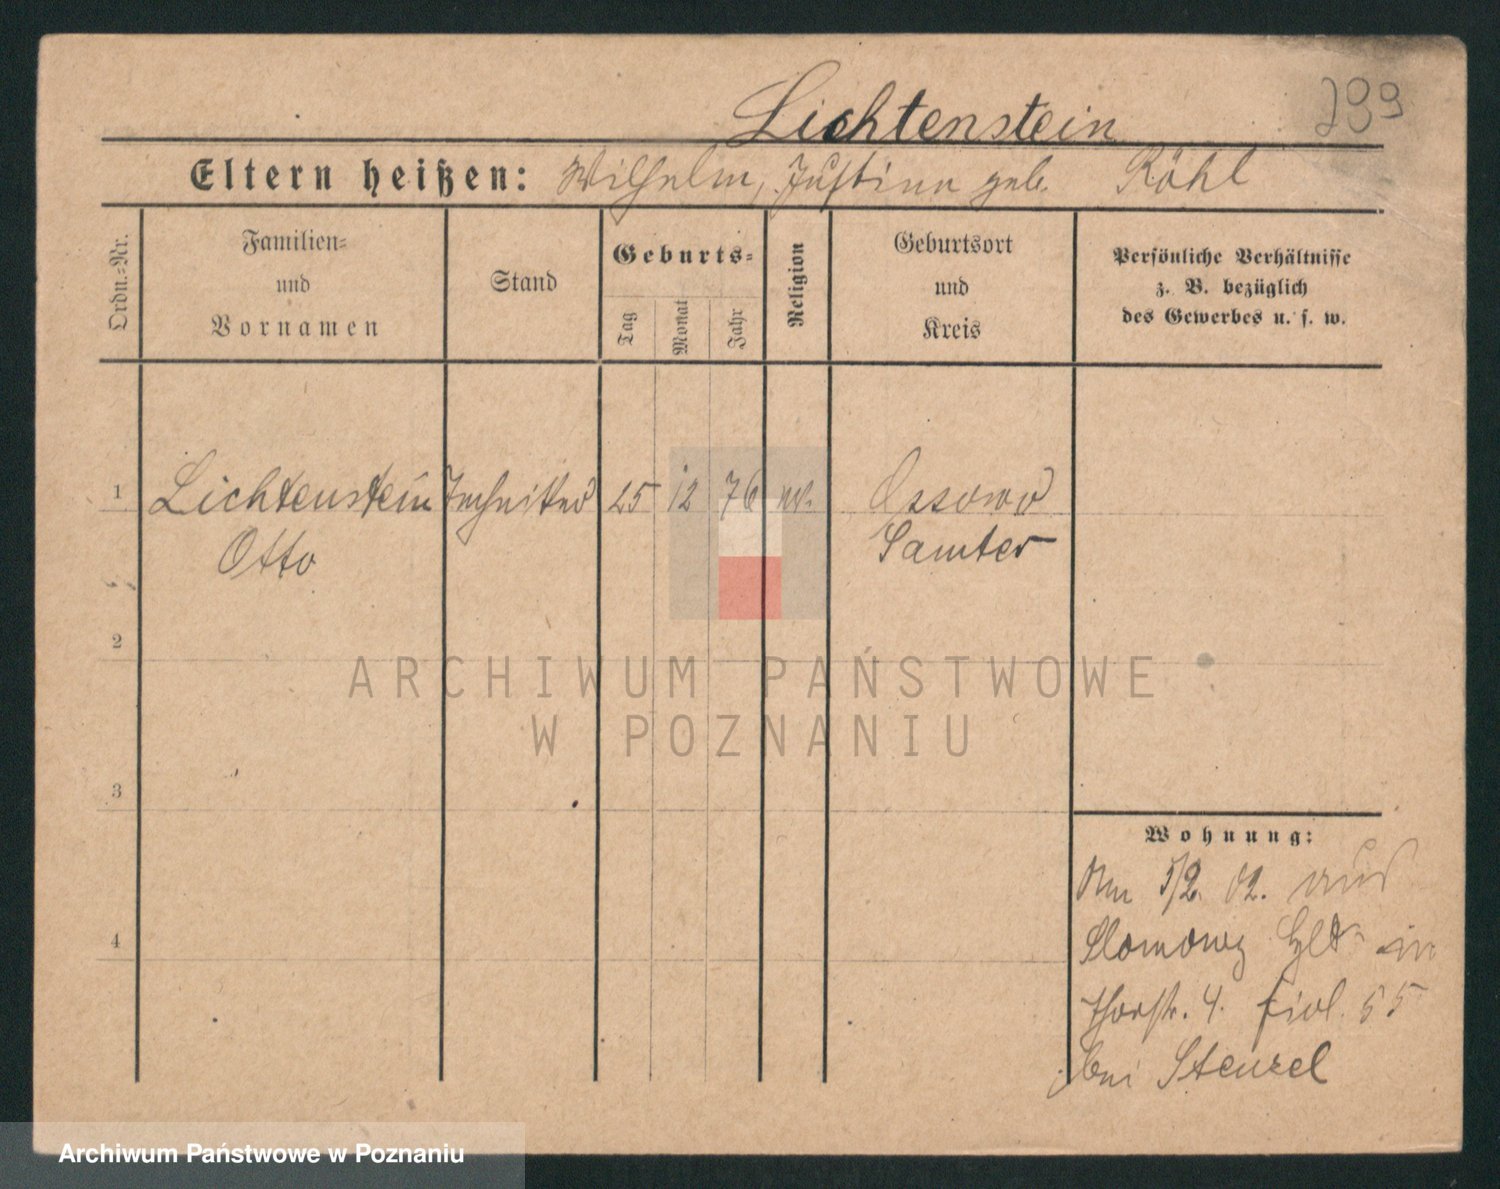 Lichtenstein
299
Eltern heißen: Wilhelm, Justine geb. Röhl
Ordn.-Nr.
Familien-
und
Vornamen
Stand
Geburts-
Tag
Monat
Jahr
Religion
Geburtsort
und
Kreis
Persönliche Verhältnisse
z. B. bezüglich
des Gewerbes u. s. w.
1 Lichtenstein Techniker 25 12 76 ev. Ossowo
Otto Samter
2
ARCHIWUM PAŃSTWOWE
W POZNANIU
3
Wohnung:
5/2. 02. aus
4
in
4. 55
bei Stenzel
Archiwum Państwowe w Poznaniu